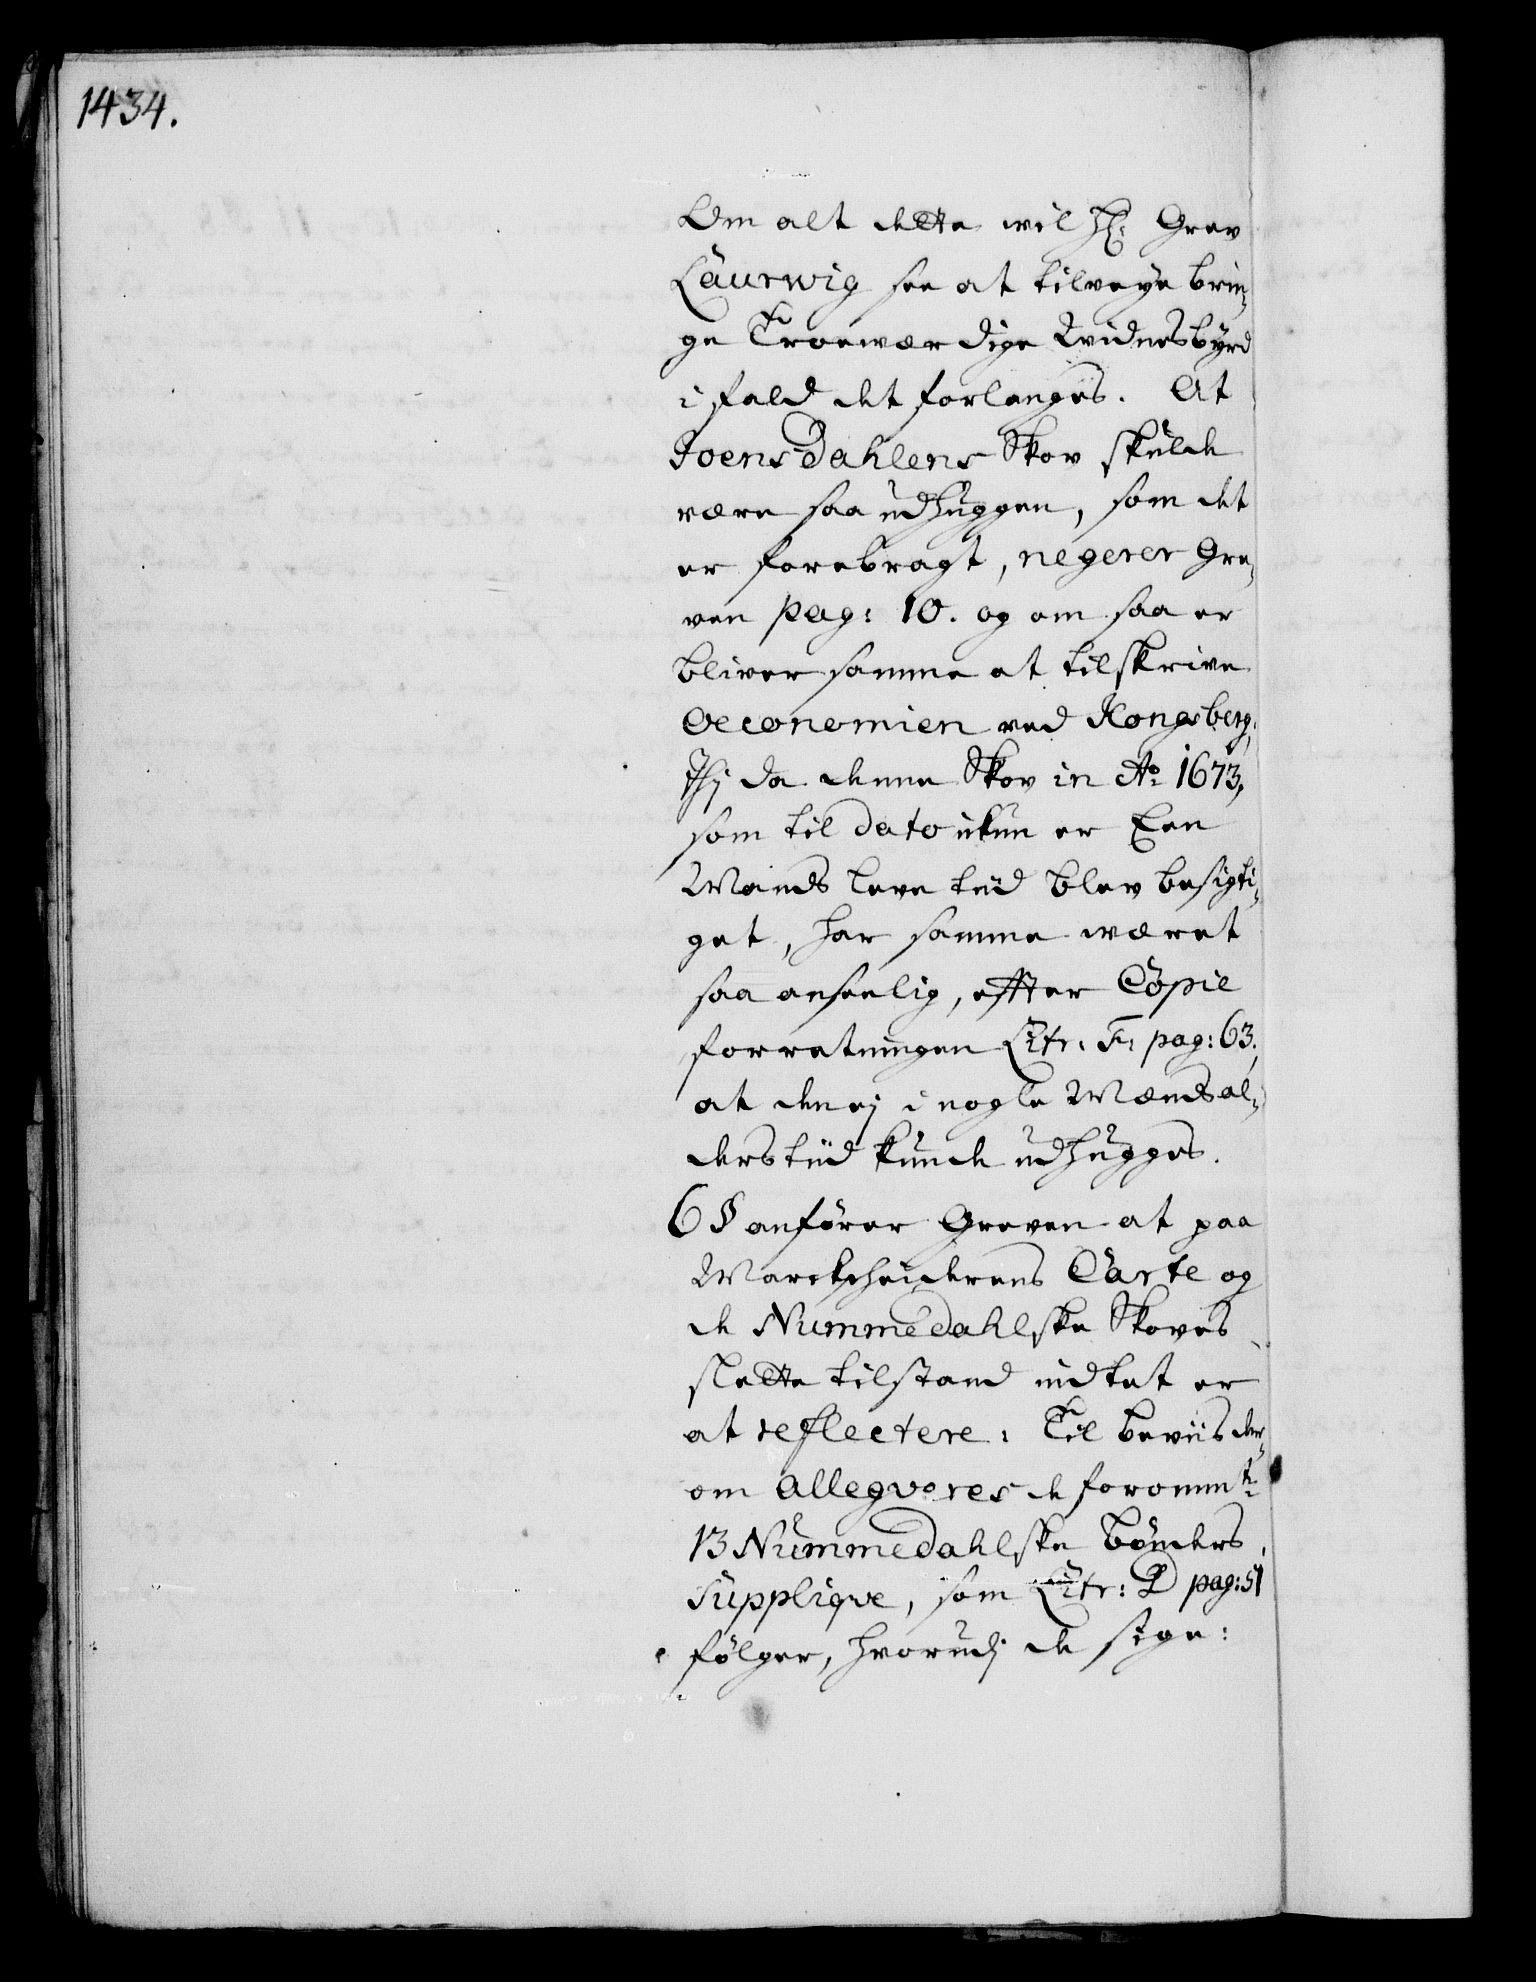 1434.
Om alt dette wil H: Grev
Laurwig see at tilveye brin-
ge Troeværdige Vidnesbyrd
i fald det forlanges. At
Joensdahlens Skov skulde
være saa udhuggen, som det
er forebragt, negerer Gre-
ven pag: 10. og om saa er
bliver samme at tilskrive
Oeconomien ved Kongsberg,
Thj da denne Skov in Ao 1673,
som til dato ikun er Een
Mands leve tiid blev besigti-
get, har samme været
saa anseelig, effter Copie
forretningen Litr: F: pag: 63.
at den ej i nogle Mænds al-
ders tiid kunde udhugges.
6 § anfører Greven at paa
Marckscheiderens Carte og
de Nummedahlske Skoves
slette tilstand indtet er
at reflectere: Til beviis der-
om allegveres de forommte
13 Nummedahlske bønders
Supplique, som Litr: D pag: 51
følger, hvorudj de sige: